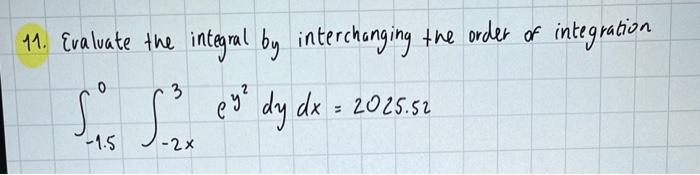 11. Evaluate the integral by interchanging the order of integration
∫_{-1.5}^{0} ∫_{-2x}^{3} e^{y^2} dy dx = 2025.52